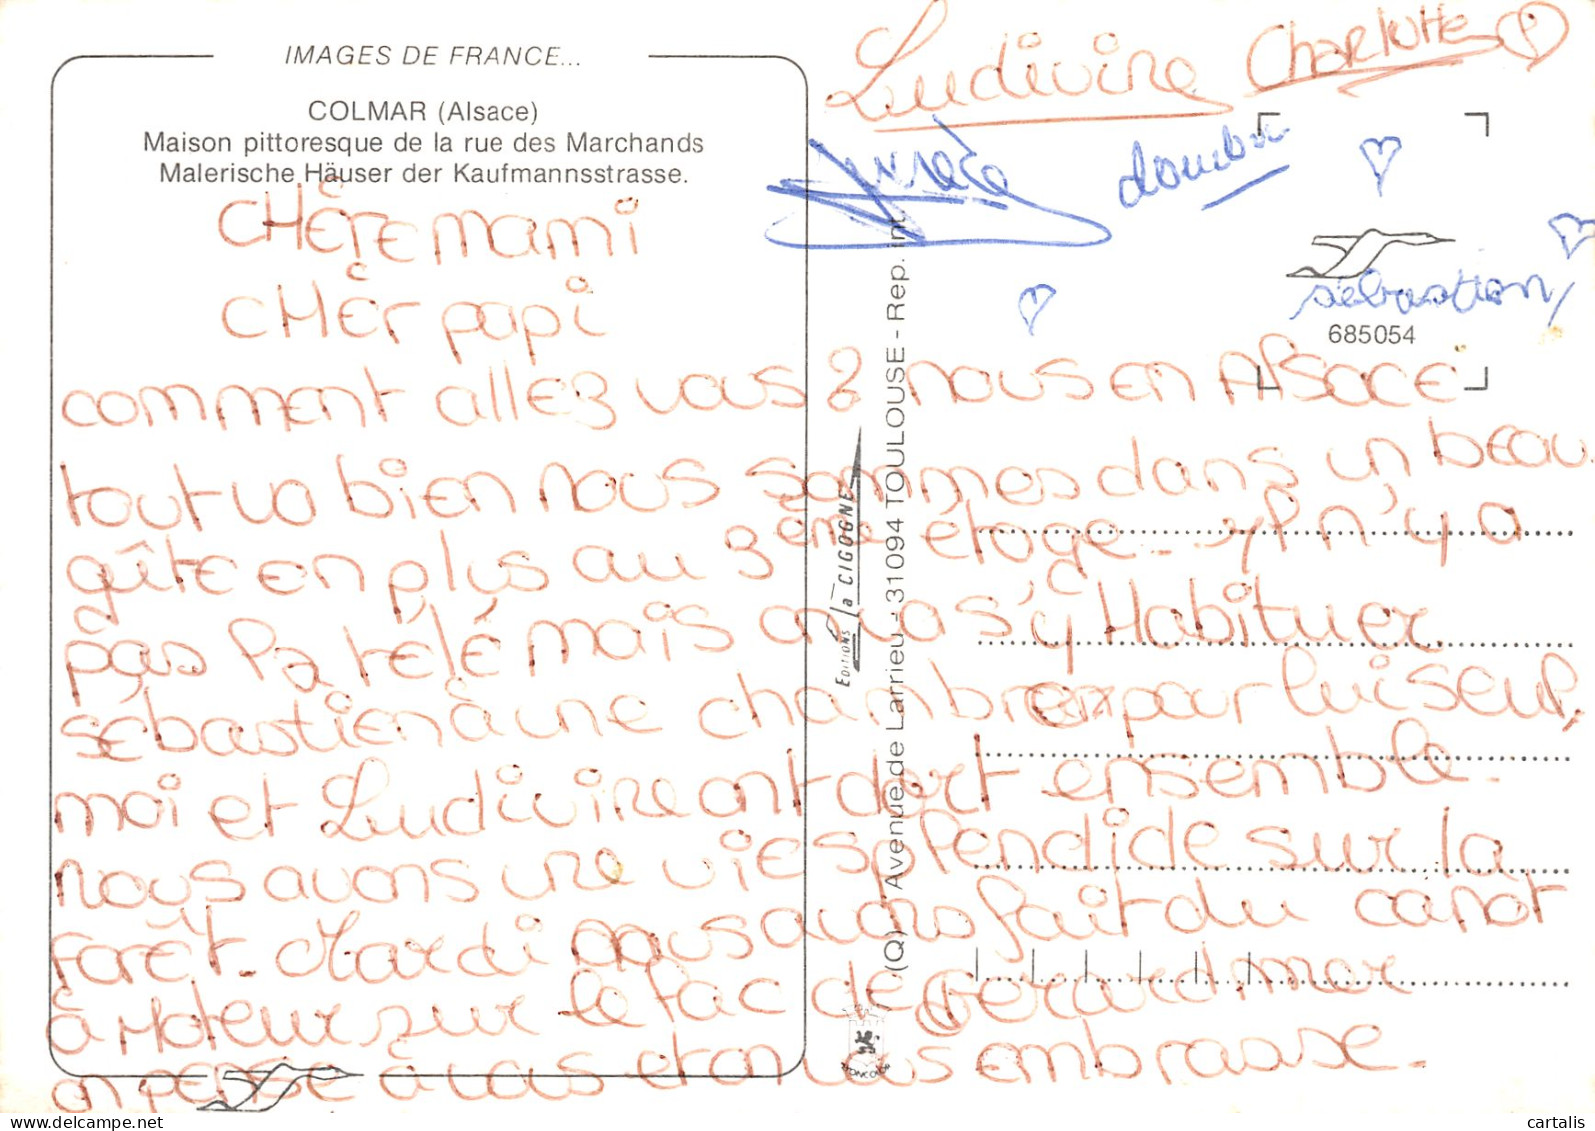 IMAGES DE FRANCE...
COLMAR (Alsace)
Maison pittoresque de la rue des Marchands
Malerische Häuser der Kaufmannsstrasse.
Ludivine Charlotte
doudou
sébastien
685054
CHÈrE mami
CHÈr papi
comment allez vous ? nous en AlsacE
tout va bien nous sommes dans un beau
gîte en plus au 3ème étage. il n'y a
pas la télé mais on va s'y Habituer.
sébastien à une chambre pour lui seul,
moi et Ludivine ont dort ensemble.
nous avons une vie splendide sur la
forêt. Mardi nous avons fait du canot
à moteur sur le lac de Gérardmer
on pense à vous et on vous embrasse.
EDITIONS la CIGOGNE
(Q) 7 Avenue de Larrieu - 31094 TOULOUSE - Rep. int
delcampe.net
cartalis